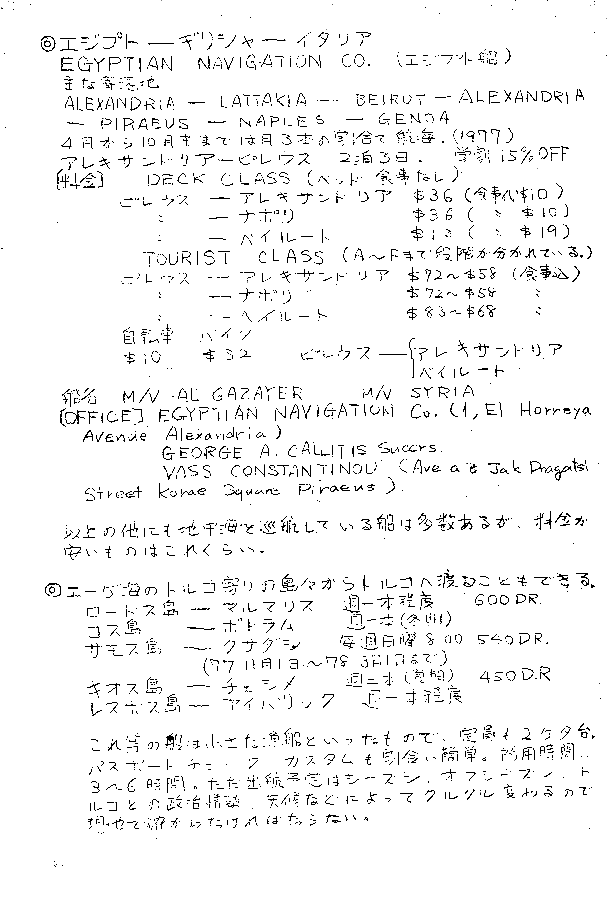 ◎エジプト ― ギリシャ ― イタリア
EGYPTIAN NAVIGATION CO. (エジプト船)
主な寄港地
ALEXANDRIA — LATTAKIA — BEIRUT — ALEXANDRIA
— PIRAEUS — NAPLES — GENOA
4月から10月末までは月3本の割合で航海。(1977)
アレキサンドリアーピレウス 2泊3日. 学割15%OFF
[料金] DECK CLASS (ベッド 食事なし)
ピレウス ― アレキサンドリア $36 (食事代$10)
〃 ― ナポリ $36 (〃 $10)
〃 ― ベイルート (〃 $19)
TOURIST CLASS (A〜Fまで段階が分かれている.)
ピレウス ― アレキサンドリア $72〜$58 (食事込)
〃 ― ナポリ $72〜$58 〃
〃 ― ベイルート $83〜$68 〃
自転車 バイク
$10 $32 ピレウス ― アレキサンドリア
ベイルート
船名 M/V AL GAZAYER M/V SYRIA
[OFFICE] EGYPTIAN NAVIGATION Co. (1, El Horreya
Avenue Alexandria)
GEORGE A. CALLITIS Succrs.
VASS CONSTANTINOU (Ave Jak Dragatsi
Street Korae Square Piraeus).
以上の他にも地中海を巡航している船は多数あるが、料金が
安いものはこれくらい。
◎エーゲ海のトルコ寄りの島々からトルコへ渡ることもできる.
ロードス島 ― マルマリス 週一本程度 600DR.
コス島 ― ボドラム 週一本(冬期)
サモス島 ― クサダシ 毎週日曜 8:00 540DR.
(77 11月1日〜78 3月1日まで)
キオス島 ― チェシメ 週二本 450DR
レスボス島 ― アイバリック 週一本程度
これ等の船は小さな漁船といったもので、定員も
パスポートチェック、カスタムも割合い簡単。所用時間
3〜6時間。ただ出航予定はシーズン、オフシーズン、ト
ルコとの政治情勢、天候などによってクルクル変わるので
現地で確かめなければならない。